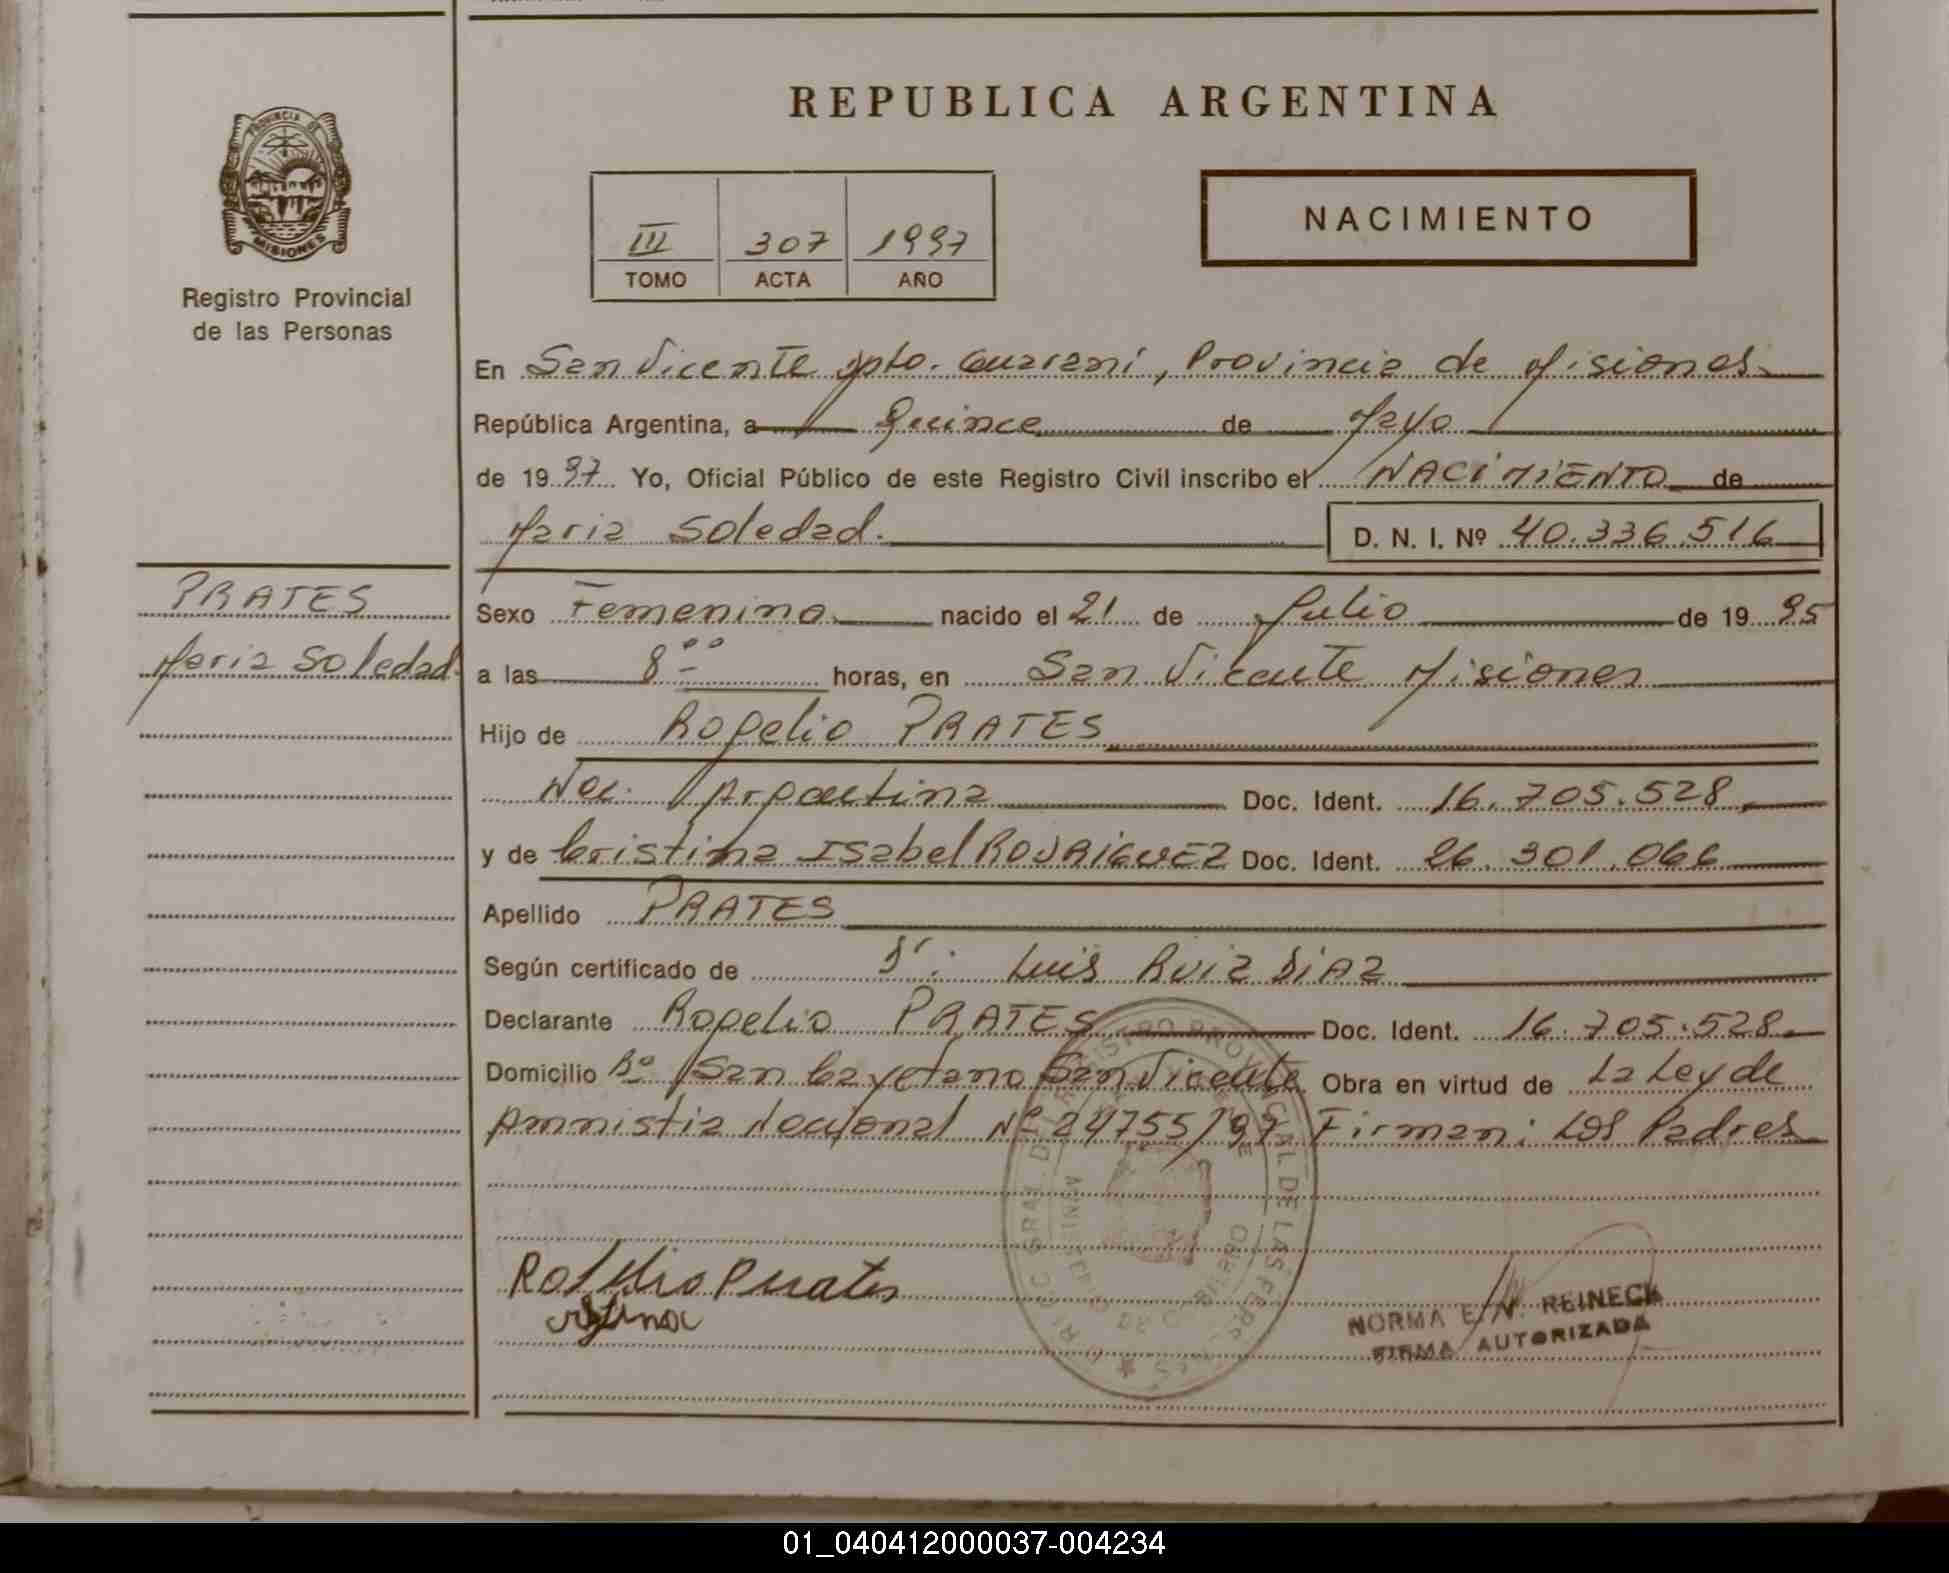 REPUBLICA ARGENTINA
PROVINCIA DE
MISIONES
Registro Provincial
de las Personas
III 307 1997
TOMO ACTA AÑO
NACIMIENTO
En San Vicente Dpto. Guaraní, Provincia de Misiones
República Argentina, a Quince de Mayo
de 1997 Yo, Oficial Público de este Registro Civil inscribo el NACIMIENTO de
Maria Soledad. D. N. I. Nº 40.336.516
PRATES
Maria Soledad
Sexo Femenino nacido el 21 de Julio de 1995
a las 8 ºº horas, en San Vicente Misiones
Hijo de Rogelio PRATES
Nac. Argentina Doc. Ident. 16.705.528
y de Cristina Isabel RODRIGUEZ Doc. Ident. 26.301.066
Apellido PRATES
Según certificado de Dr. Luis Ruiz DIAZ
Declarante Rogelio PRATES Doc. Ident. 16.705.528
Domicilio Bº San Cayetano San Vicente Obra en virtud de La Ley de
Amnistia Nacional Nº 24755/97 Firman: Los Padres
Rogelio Prates
NORMA E. N. REINECK
FIRMA AUTORIZADA
01_040412000037-004234